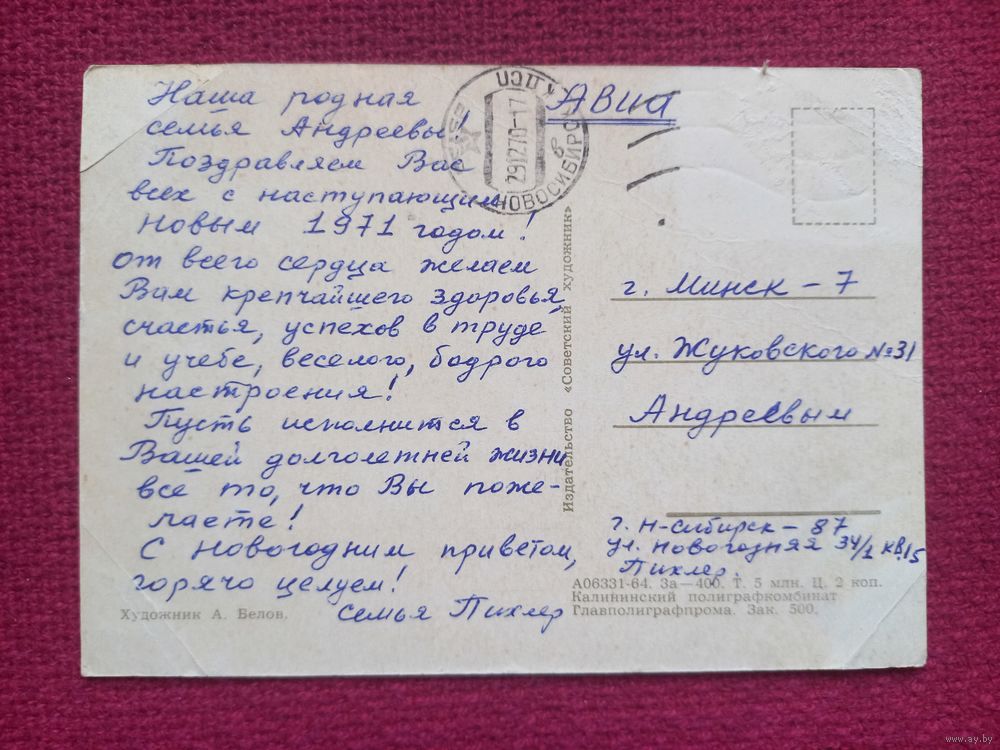 Наша родная
семья Андреевы!
Поздравляем Вас
всех с наступающим
Новым 1971 годом!
От всего сердца желаем
Вам крепчайшего здоровья,
счастья, успехов в труде
и учебе, веселого, бодрого
настроения!
Пусть исполнится в
Вашей долголетней жизни
всё то, что Вы поже-
лаете!
С Новогодним приветом,
горячо целуем!
Семья Пихлер
Художник А. Белов.
НОВОСИБИРСК ПСЦ
291270-17
в
Авиа
Издательство «Советский художник»
г. Минск - 7
ул. Жуковского №31
Андреевым
г. Н-Сибирск - 87
ул. Новогодняя 34/1 кв.15
Пихлер.
А06331-64. За—400. Т. 5 млн. Ц. 2 коп.
Калининский полиграфкомбинат
Главполиграфпрома. Зак. 500.
www.ay.by